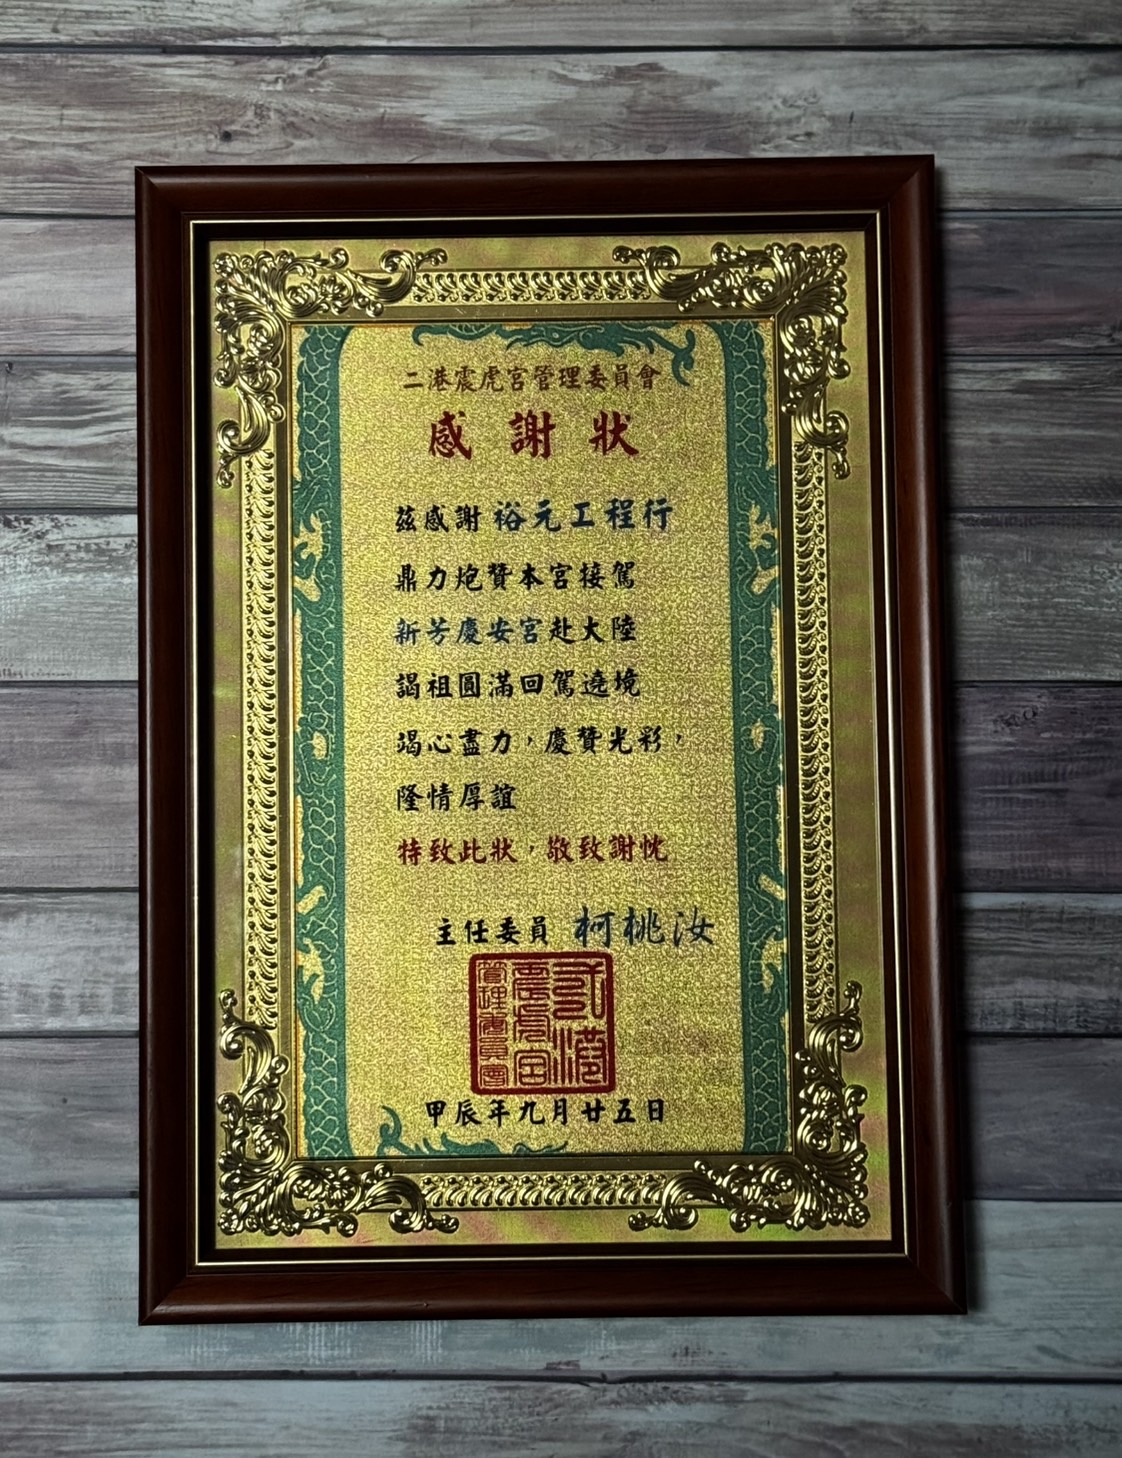 二港震虎宮管理委員會
感謝狀
茲感謝裕元工程行
鼎力炮贊本宮接駕
新芳慶安宮赴大陸
謁祖圓滿回駕遶境
竭心盡力，慶贊光彩，
隆情厚誼
特致此狀，敬致謝忱
主任委員 柯桃汝
二港
震虎宮
管理委員會
甲辰年九月廿五日